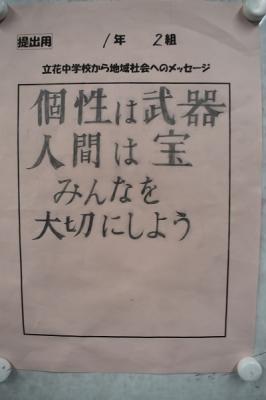 提出用 1年 2組
立花中学校から地域社会へのメッセージ
個性は武器
人間は宝
みんなを
大切にしよう